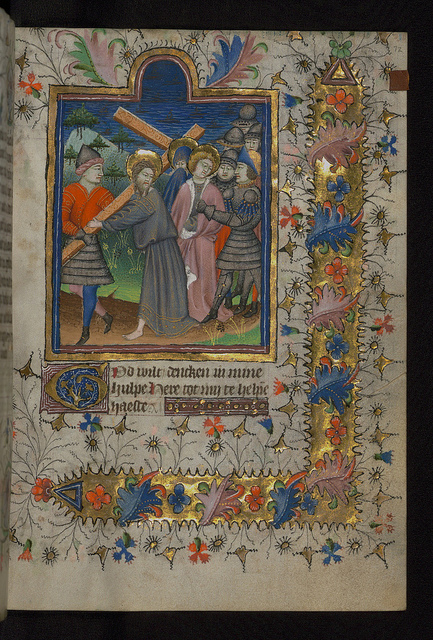 God wilt dencken in mine
hulpe Here tot my te helpe
haeste
72